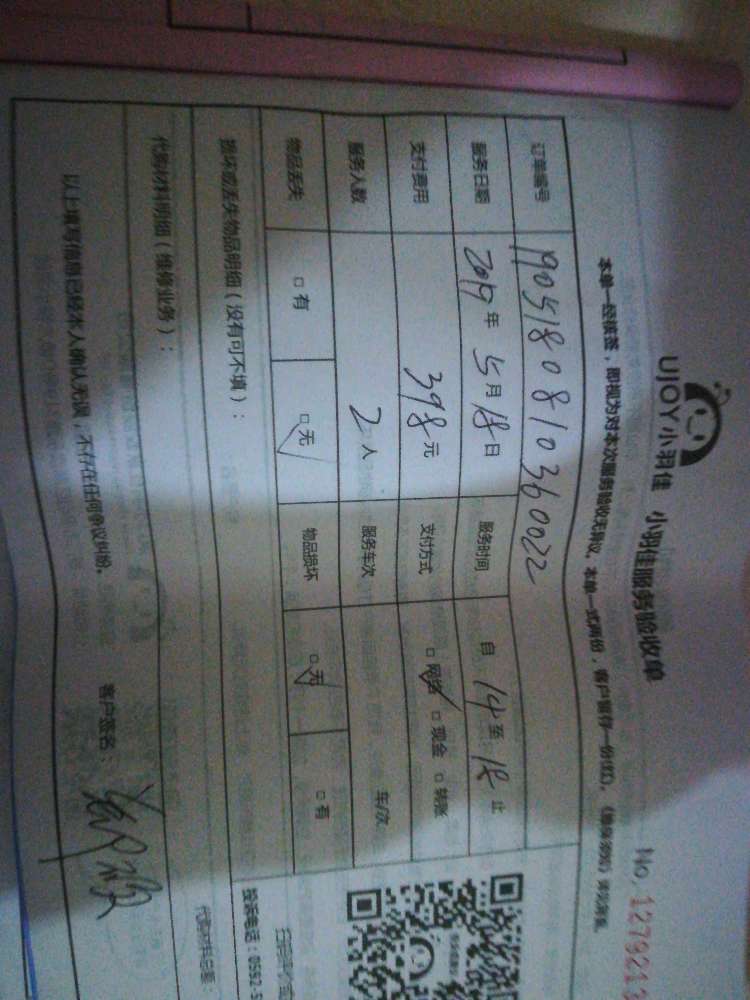 UJOY小羽佳 小羽佳服务验收单 No. 1279213
本单一经核签，即视为对本次服务验收无异议。本单一式两份，客户留存一份(红)，
订单编号 1905180810360022
服务日期 2019年 5月18日 服务时间 自 14 至 18 止
支付费用 398元 支付方式 □网络 □现金 □转账
服务人数 2人 服务车次 车/次
物品丢失 □有 □无 物品损坏 □无 □有
损坏或丢失物品明细（没有可不填）：
投诉电话：0592-5
代购材料明细（维修业务）：
代购材料总额：
以上填写信息已经本人确认无误，不存在任何争议纠纷。
客户签名：